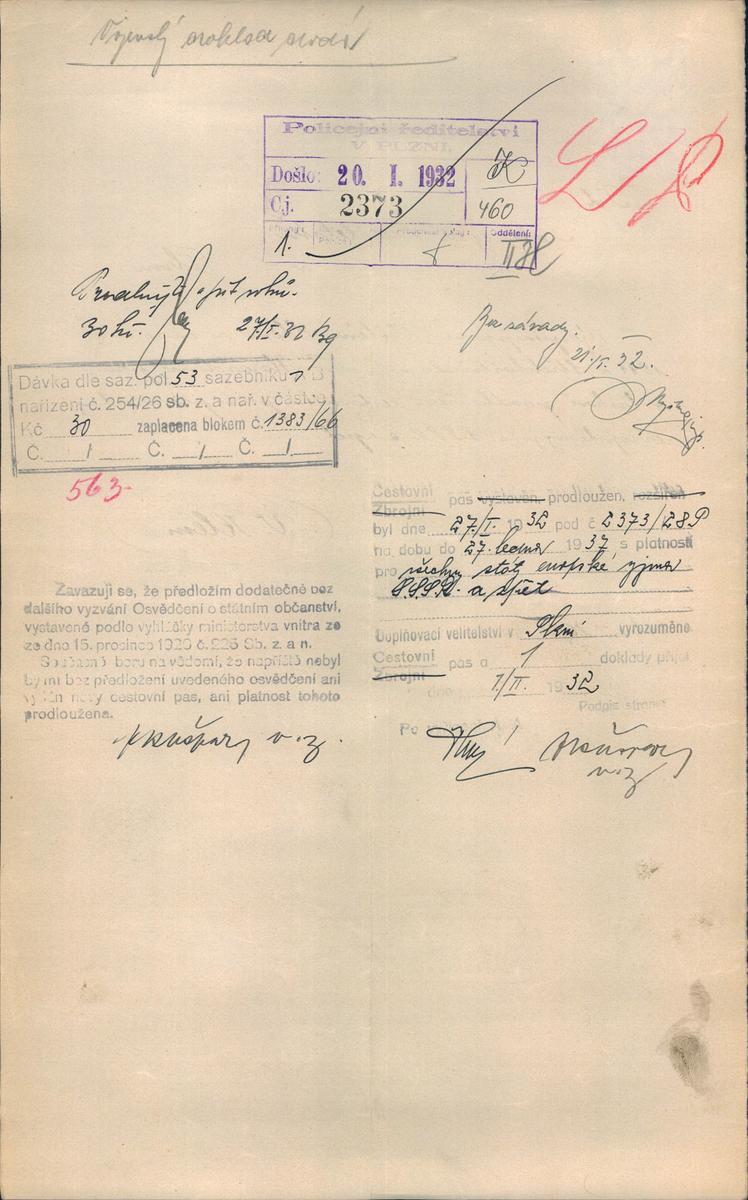 Policejní ředitelství
V PLZNI.
Došlo: 20. I. 1932
Čj. 2373
K
460
1.
Oddělení:
30 kč. 27/I. 32
Bez závady.
21./I. 32.
Dávka dle saz. pol. 53 sazebníku
nařízení č. 254/26 sb. z. a nař. v částce
Kč 30 zaplacena blokem č. 1383/66
Č. / Č. / Č. /
563
Cestovní
Zbrojní
pas vystaven, prodloužen, rozšířen
byl dne 27./I. 1932 pod č 2373/
na dobu do 27. ledna 1937, s platností
pro všechny státy evropské vyjma
S.S.S.R. a zpět
Doplňovací velitelství v Plzni vyrozuměno
Cestovní
Zbrojní
pas a 1 doklady přijal
dne 1./II. 1932
Podpis strany
Zavazuji se, že předložím dodatečně bez
dalšího vyzvání Osvědčení o státním občanství,
vystavené podlo vyhlášky ministerstva vnitra ze
ze dne 15. prosince 1926 č. 225 Sb. z. a n.
Současně beru na vědomí, že napříště nebyl
by mi bez předložení uvedeného osvědčení ani
vydán nový cestovní pas, ani platnost tohoto
prodloužena.